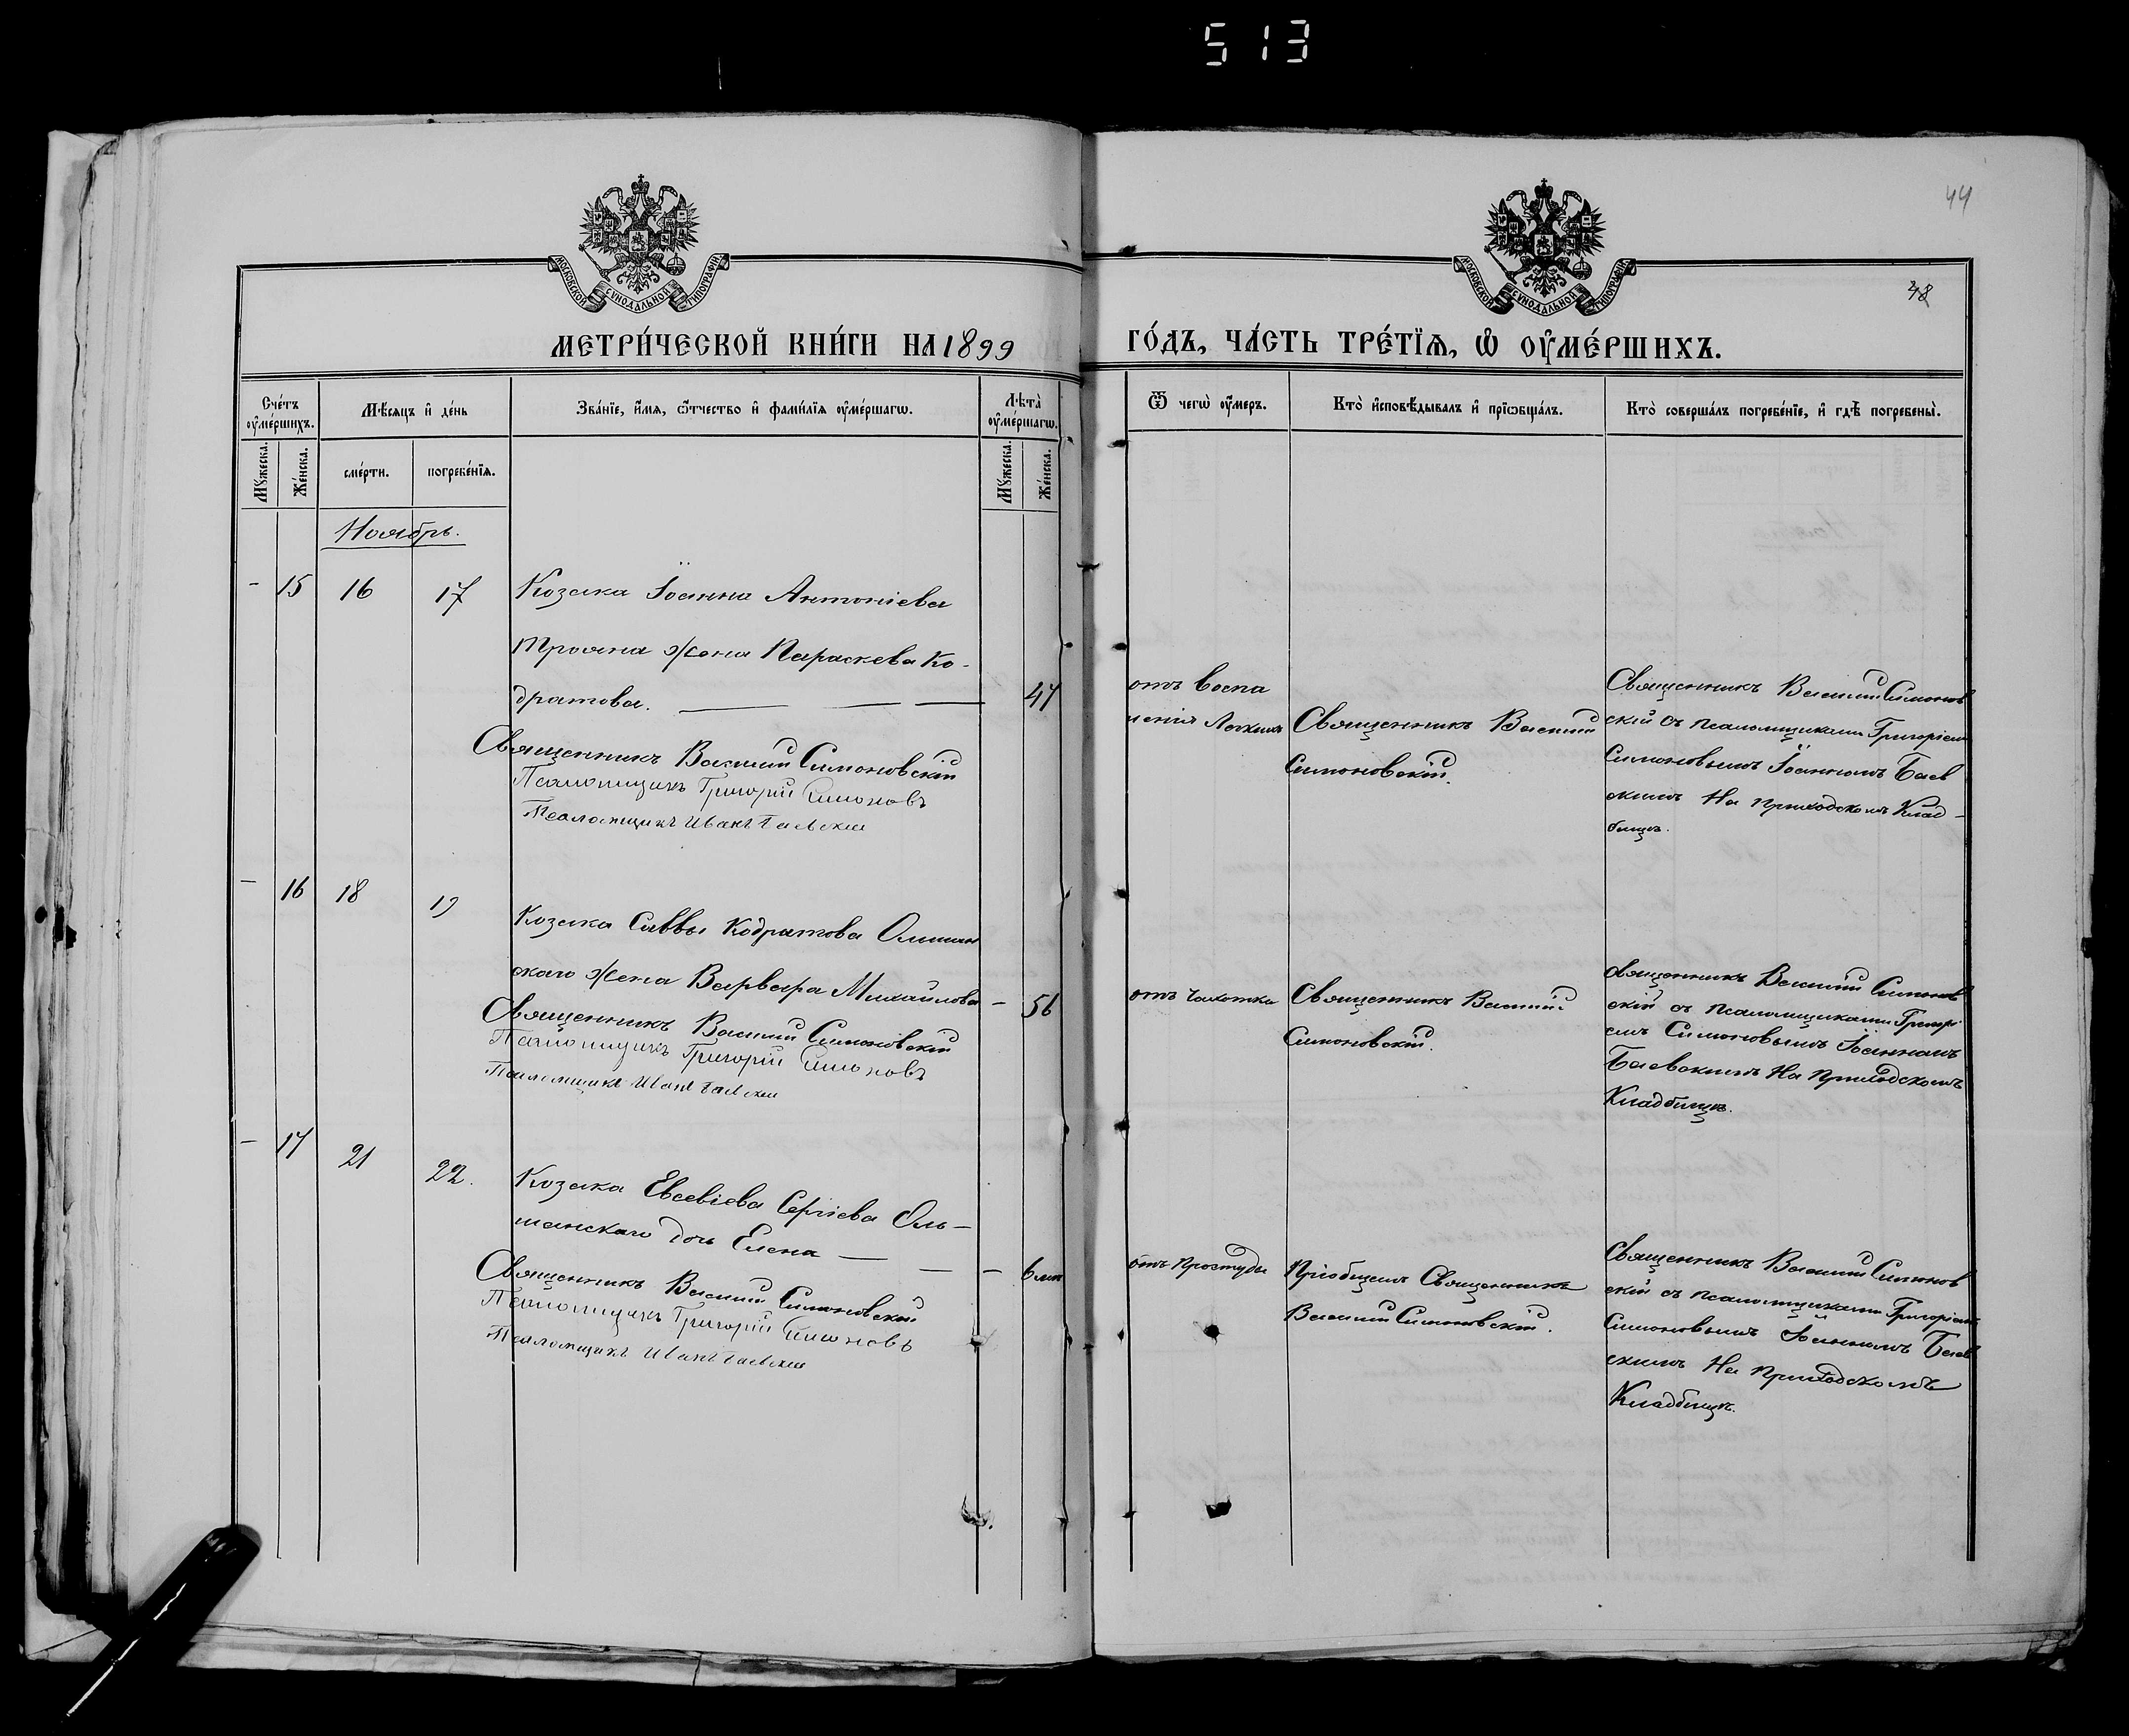 513
44
48
МОСКОВСКОЙ СѴНОДАЛЬНОЙ ТИПОГРАФІИ
МОСКОВСКОЙ СѴНОДАЛЬНОЙ ТИПОГРАФІИ
МЕТРИ́ЧЕСКОЙ КНИ́ГИ НА 1899
ГО́ДЪ, ЧА́СТЬ ТРЕ́ТЇѦ, Ѡ҆ ОУ҆МЕ́РШИХЪ.
Сче́тъ оу҆ме́ршихъ.
Мꙋ́жеска.
Же́нска.
Мѣ́сяцъ и҆ де́нь
сме́рти.
погребе́нїѧ.
Зва́нїе, и҆́мѧ, ѻ҆́тчество и҆ фами́лїѧ оу҆ме́ршагѡ.
Лѣ́та̀ оу҆ме́ршагѡ.
Мꙋ́жеска.
Же́нска.
Ѿ чегѡ̀ оу҆́меръ.
Кто̀ и҆сповѣ́дывалъ и҆ прїѡбща́лъ.
Кто̀ соверша́лъ погребе́нїе, и҆ гдѣ̀ погребены̀.
Ноябрь.
- 15 16 17
Козака Іоанна Антоніева
Трояна жена Параскева Ко-
дратова. 47
Священникъ Василій Симоновскій
Псаломщикъ Григорій Симоновъ
Псаломщикъ Иванъ Баевскій
отъ воспа
ленія Легкихъ
Священникъ Василій
Симоновскій.
Священникъ Василій Симонов
скій съ псаломщиками Григоріемъ
Симоновымъ Іоанномъ Баев
скимъ На приходскомъ Клад-
бищѣ.
- 16 18 19
Козака Саввы Кодратова Ольшан
скаго жена Варвара Михайлова - 56
Священникъ Василій Симоновскій
Псаломщикъ Григорій Симоновъ
Псаломщикъ Иванъ Баевскій
отъ Чахотки
Священникъ Василій
Симоновскій.
Священникъ Василій Симонов
скій съ псаломщиками Григорі
емъ Симоновымъ Іоанномъ
Баевскимъ На Приходскомъ
Кладбищѣ.
- 17 21 22.
Козака Евсевіева Сергіева Оль-
шанскаго дочь Елена - 6
Священникъ Василій Симоновскій
Псаломщикъ Григорій Симоновъ
Псаломщикъ Иванъ Баевскій
отъ Простуды
Пріобщалъ Священникъ
Василій Симоновскій.
Священникъ Василій Симонов
скій съ псаломщиками Григоріемъ
Симоновымъ Іоанномъ Баев
скимъ На Приходскомъ
Кладбищѣ.